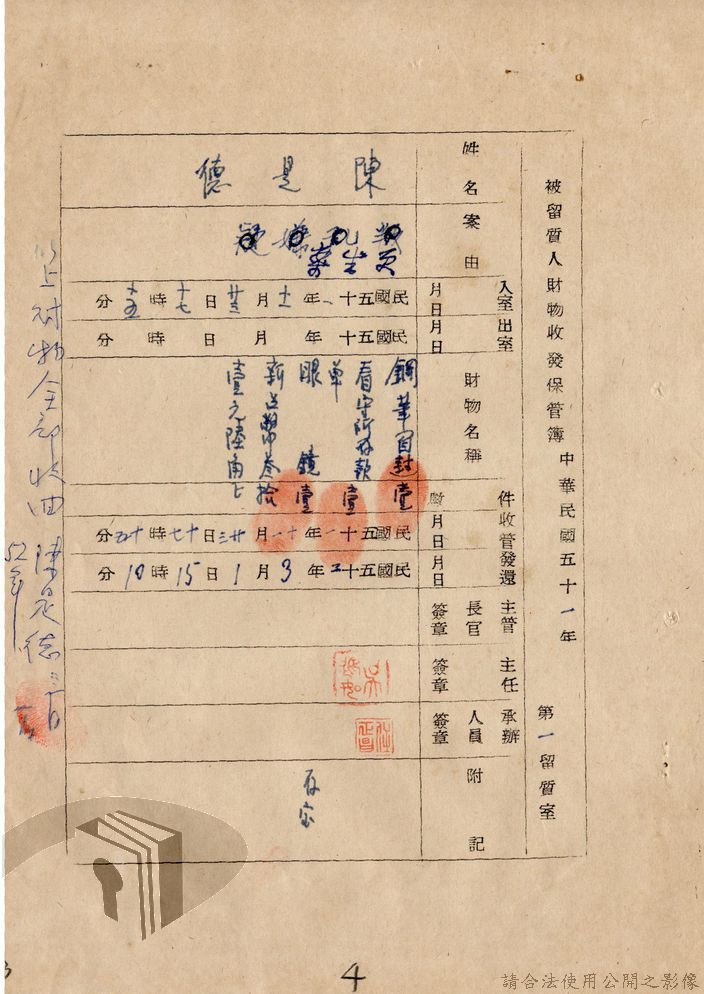 被留質人財物收發保管簿 中華民國五十一年 第一留質室
姓名
陳是德
案由
叛亂嫌疑
入室月日
民國五十一年十一月廿三日十七時十五分
出室月日
民國五十年月日時分
財物名稱
鋼筆自封
看守所存款
單
眼鏡
新台幣叁拾
壹元陸角正
件數
壹
壹
壹
收管月日
民國五十一年十一月廿三日十七時十五分
發還月日
民國五十二年3月1日15時10分
主管長官簽章
主任簽章
承辦人員簽章
附記
存室
以上財物全部收回 陳是德
52年
4
請合法使用公開之影像